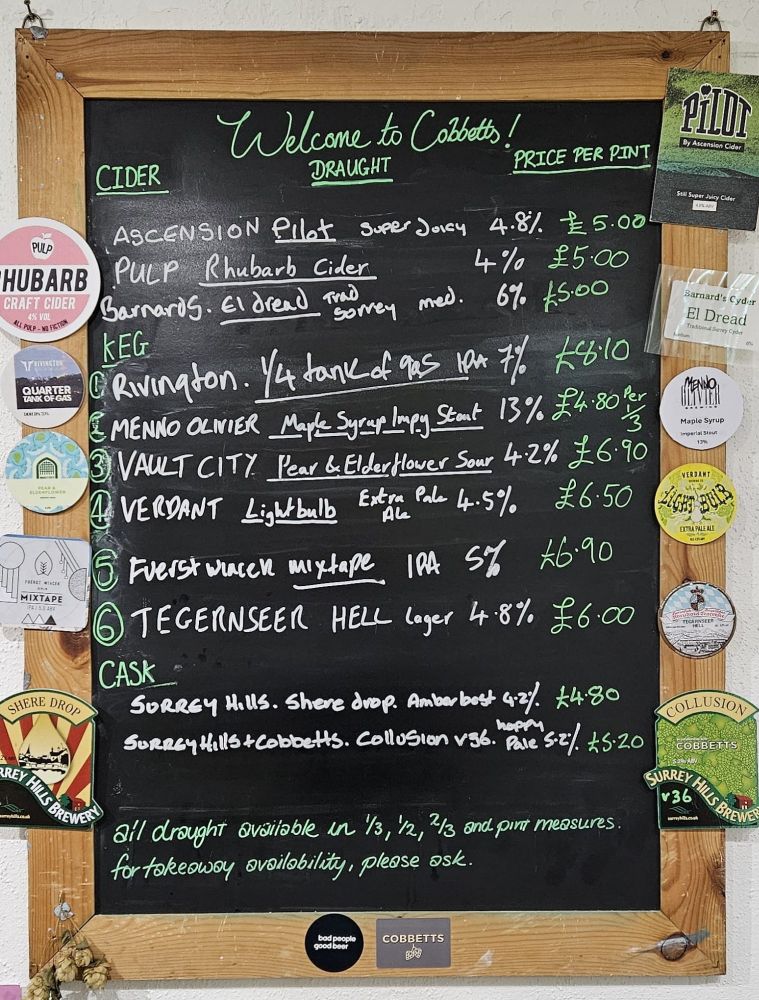 Welcome to Cobbetts!
CIDER DRAUGHT PRICE PER PINT
ASCENSION Pilot Super Juicy 4.8% £5.00
PULP Rhubarb Cider 4% £5.00
Barnards. El dread Trad Surrey med. 6% £5.00
KEG
1 Rivington. 1/4 tank of gas IPA 7% £8.10
2 MENNO OLIVIER Maple Syrup Impy Stout 13% £4.80 Per 1/3
3 VAULT CITY Pear & Elderflower Sour 4.2% £6.90
4 VERDANT Lightbulb Extra Pale Ale 4.5% £6.50
5 Fuerst Wiacek mixtape IPA 5% £6.90
6 TEGERNSEER HELL lager 4.8% £6.00
CASK
Surrey Hills. Shere drop. Amber best 4.2%. £4.80
Surrey Hills + Cobbetts. Collusion v36. hoppy Pale 5.2%. £5.20
all draught available in 1/3, 1/2, 2/3 and pint measures.
for takeaway availability, please ask.
PILOT
By Ascension Cider
Still Super Juicy Cider
PULP
RHUBARB
CRAFT CIDER
4% VOL
ALL PULP - NO FICTION
Barnard's Cyder
El Dread
Traditional Surrey Cyder
6%
RIVINGTON
QUARTER
TANK OF GAS
MENNO
OLIVIER
BREWING
Maple Syrup
Imperial Stout
13%
PEAR &
ELDERFLOWER
VERDANT
LIGHTBULB
EXTRA PALE ALE
FUERST WIACEK
MIXTAPE
TEGERNSEE
HELL
SHERE DROP
SURREY HILLS BREWERY
surreyhills.co.uk
COLLUSION
COBBETTS
5.2% ABV
SURREY HILLS BREWERY
v36
bad people
good beer
COBBETTS